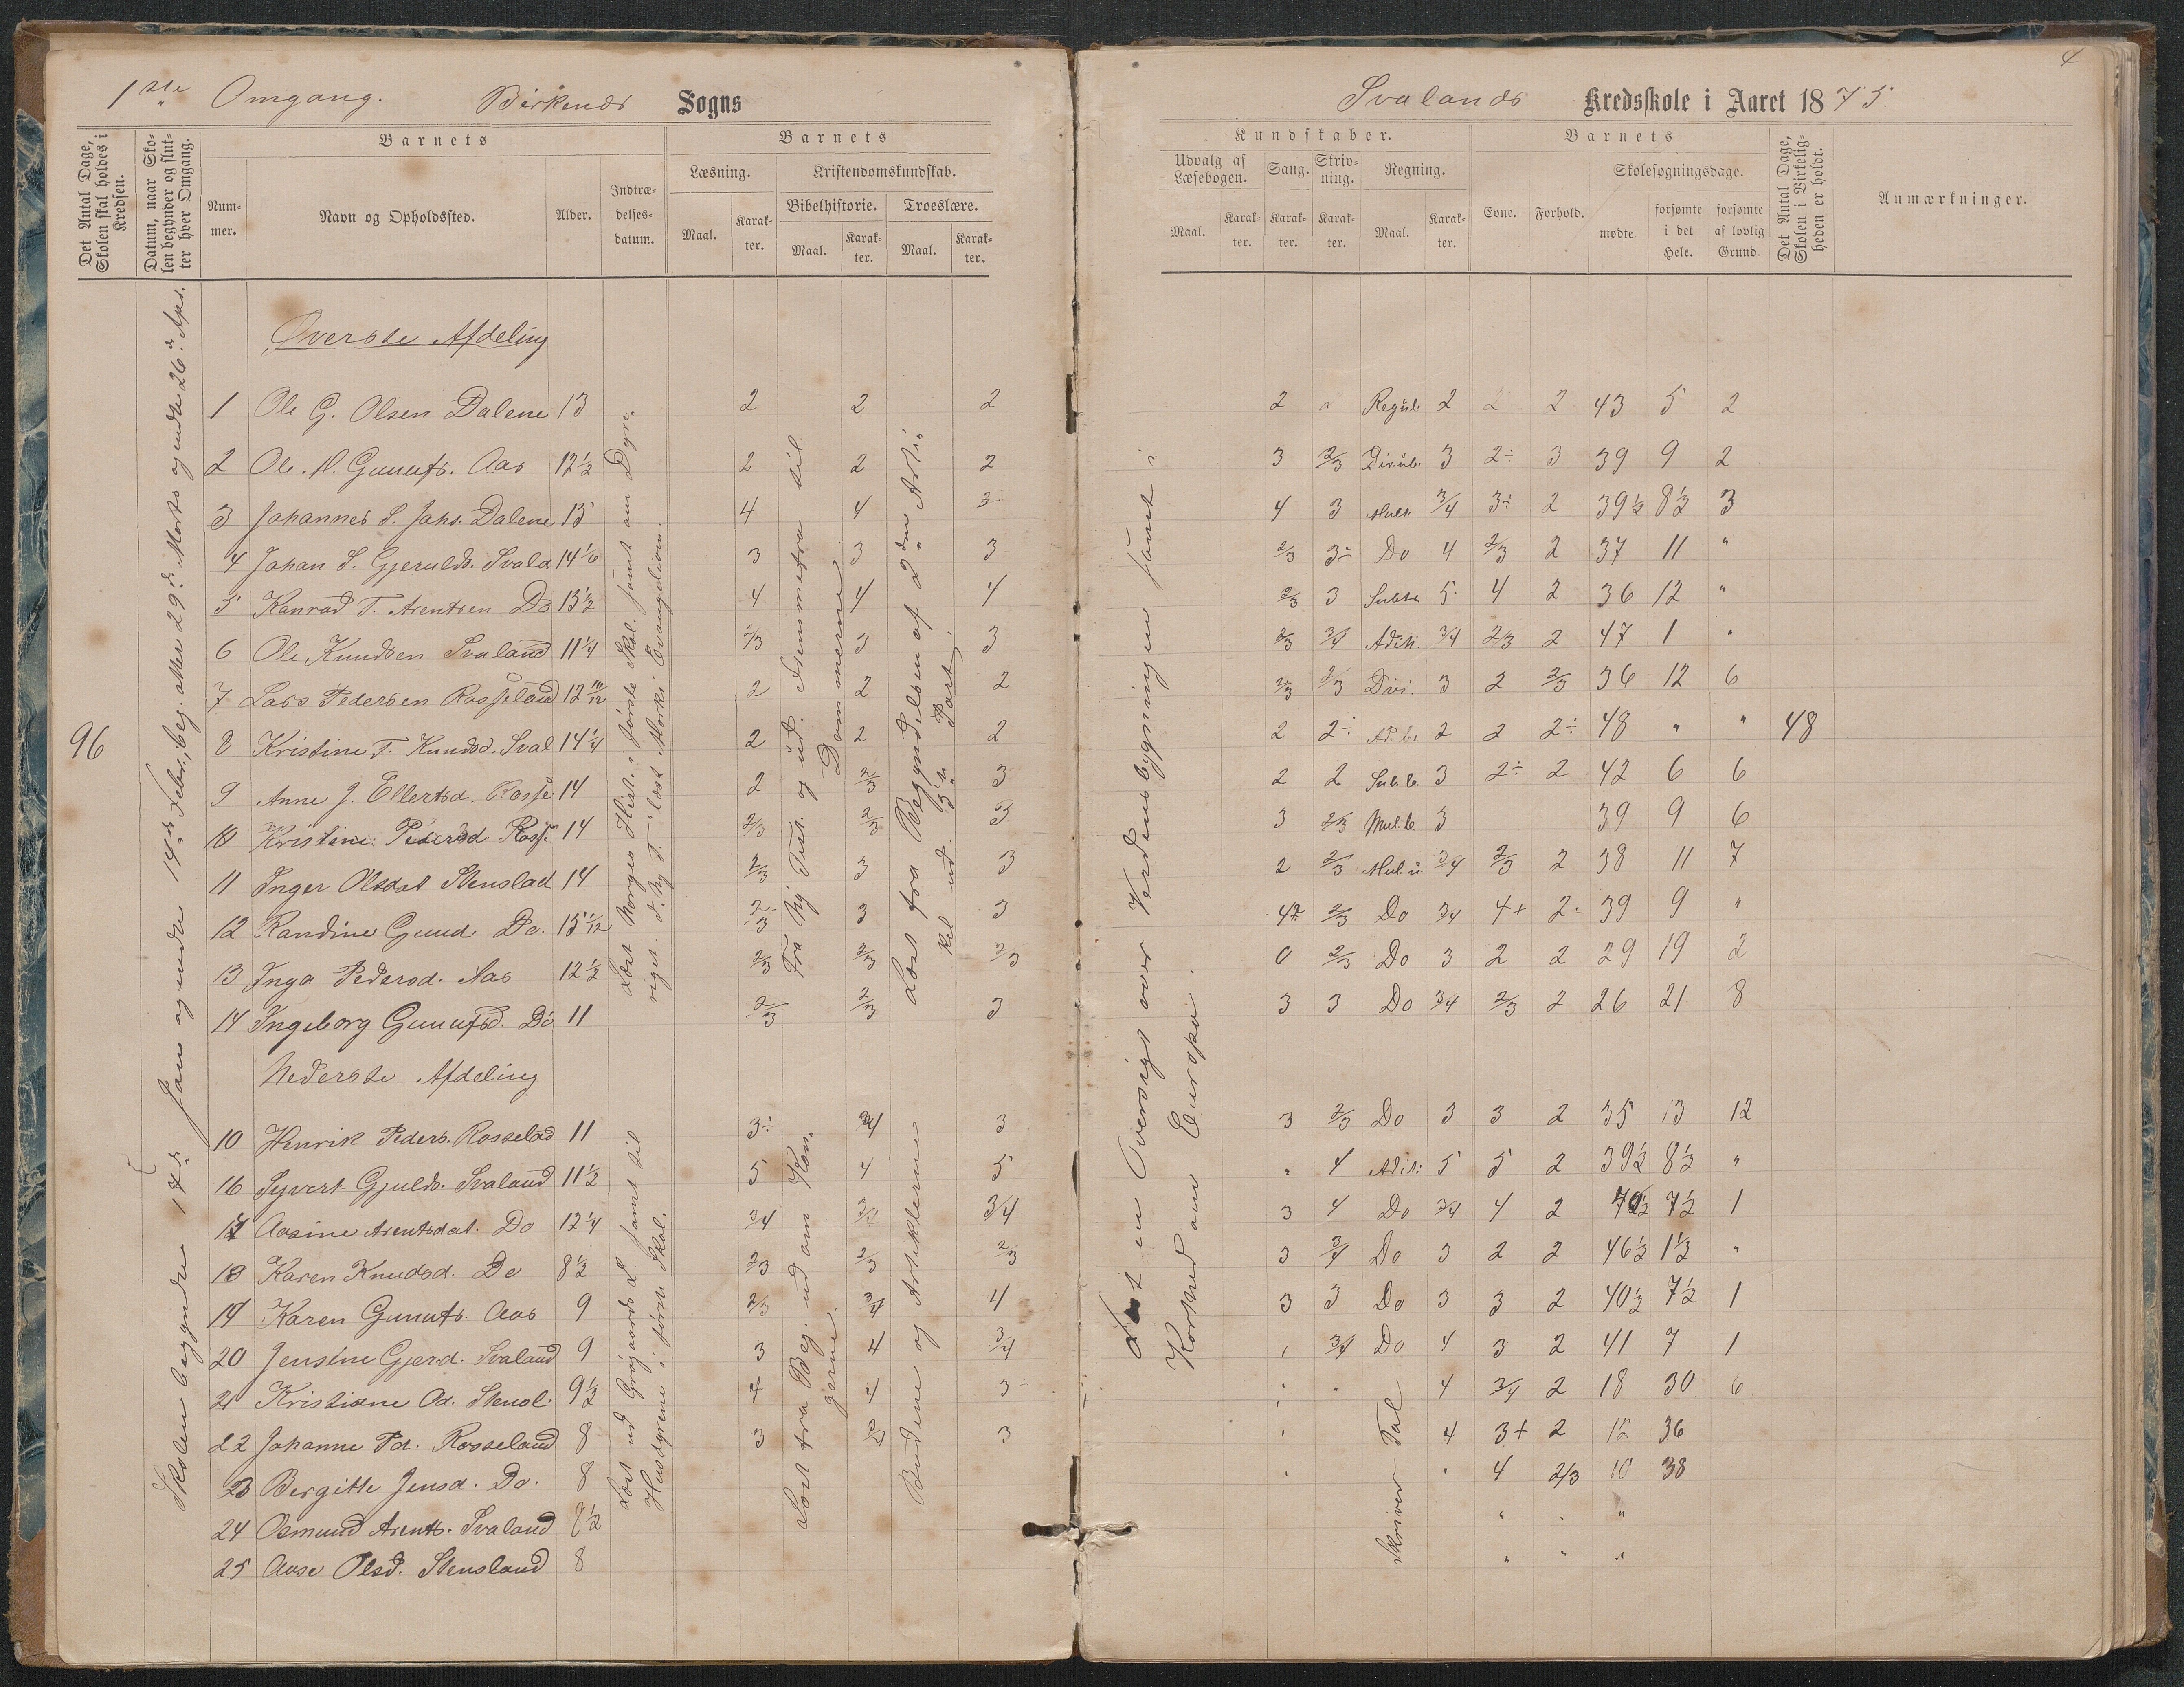 4
1ste Omgang. Birkenes Sogns
Svalands Kredsskole i Aaret 1875.
Det Antal Dage, Skolen skal holdes i Kredsen.
Datum, naar Skolen begynder og slutter hver Omgang.
Barnets
Nummer.
Navn og Opholdssted.
Alder.
Indtrædelsesdatum.
Barnets
Læsning.
Maal.
Karakter.
Kristendomskundskab.
Bibelhistorie.
Maal.
Karakter.
Troeslære.
Maal.
Karakter.
Kundskaber.
Udvalg af Læsebogen.
Maal.
Karakter.
Sang.
Karakter.
Skrivning.
Karakter.
Regning.
Maal.
Karakter.
Barnets
Evne.
Forhold.
Skolesøgningsdage.
mødte
forsømte i det Hele.
forsømte af lovlig Grund.
Det Antal Dage, Skolen i Virkeligheden er holdt.
Anmærkninger.
96
Skolen begyndte 17de Jan og endte 14de Febr., beg. atter 29de Marts og endte 26de Apr.
Øverste Afdeling
1 Ole G. Olsen Dalene 13 2 2 2 2 Regub. 2 2 2 43 5 2
2 Ole. H. Gunufs. Aas 12½ 2 2 2 3 2/3 Div.ub. 3 2÷ 3 39 9 2
3 Johannes S. Johs. Dalene 13 4 4 3 4 3 Mult. 3/4 3÷ 2 39½ 8½ 3
4 Johan S. Gjerulds. Svala 14 1/6 3 3 3 2/3 3÷ Do 4 2/3 2 37 11 "
5 Konrad T. Arentsen Do 13½ 4 4 4 2/3 3 Subtr. 5 4 2 36 12 "
6 Ole Knudsen Svaland 11¼ 2/3 3 3 2/3 3/4 Adit. 3/4 2/3 2 47 1 "
7 Lars Pedersen Rosseland 12 10/12 2 2 2 2/3 2/3 Divi. 3 2 2/3 36 12 6
8 Kristine T. Knudsd. Sval 14¼ 2 2 2 2 2÷ Ad.be 2 2 2÷ 48 " " 48
9 Anne J. Ellertsd. Rosse 14 2 2/3 3 2 2 Sub.b. 3 2÷ 2 42 6 6
10 Kristine Pedersd Ross. 14 2/3 2/3 3 3 2/3 Mul.b. 3 39 9 6
11 Inger Olsdat Stenslad 14 2/3 3 3 2 2/3 Mul.u. 3/4 2/3 2 38 11 7
12 Randine Gund. Do. 13 1/12 2/3 3 3 2/3 Do 3/4 4+ 2÷ 39 9 "
13 Inga Pedersd. Aas 12½ 2/3 2/3 2/3 0 2/3 Do 3 2 2 29 19 2
14 Ingeborg Gunufsd. Do 11 2/3 2/3 3 3 3 Do 3/4 2/3 2 26 21 8
Læst Norges Hist. i Jørste Skol. samt om Dyre-
riget. I Ny T. læst Marki Evangelium.
Fra Ny Test. og ud. Fremmefra til
Dommerne
Læst fra Begyndelsen af 2den Arti-
kel ud. 3die Part.
Læst en Oversigt over Verdensbygningen samt i
Korthed om Europa.
Nederste Afdeling
10 Henrik Peders. Rosselad 11 3÷ 3/4 3 3 2/3 Do 3 3 2 35 13 12
16 Syvert Gjulds. Svaland 11½ 5 4 5 " 4 Adit: 5 5 2 39½ 8½ "
17 Aasine Arentsdat. Do 12¼ 3/4 3/4 3 4 Do 3/4 4 2 40½ 7½ 1
18 Karen Knudsd. Do 8½ 2/3 2/3 2/3 3 3/4 Do 3 2 2 46½ 1½ "
19 Karen Gunufs. Aas 9 2/3 3/4 4 3 3 Do 3 3 2 40½ 7½ 1
20 Jensine Gjerd. Svaland 9 3 4 3/4 3/4 Do 4 3 2 41 7 1
21 Kristiane Od. Stensl. 9½ 4 4 3 4 3/4 2 18 30 6
22 Johanne Pd. Rosseland 8 3 3 4 3+ 2 12 36
23 Bergitte Jensd. Do. 8 " 4 2/3 10 38
24 Osmund Arents. Svaland 8½ " " "
25 Aase Olsd. Stensland 8 " " "
Læst ud Grøgaards L. samt til
Husdyrene i Jørste Skol.
Læst fra Beg. ud om Kon-
gerne.
Budene og Artiklerne
Skriver Tal